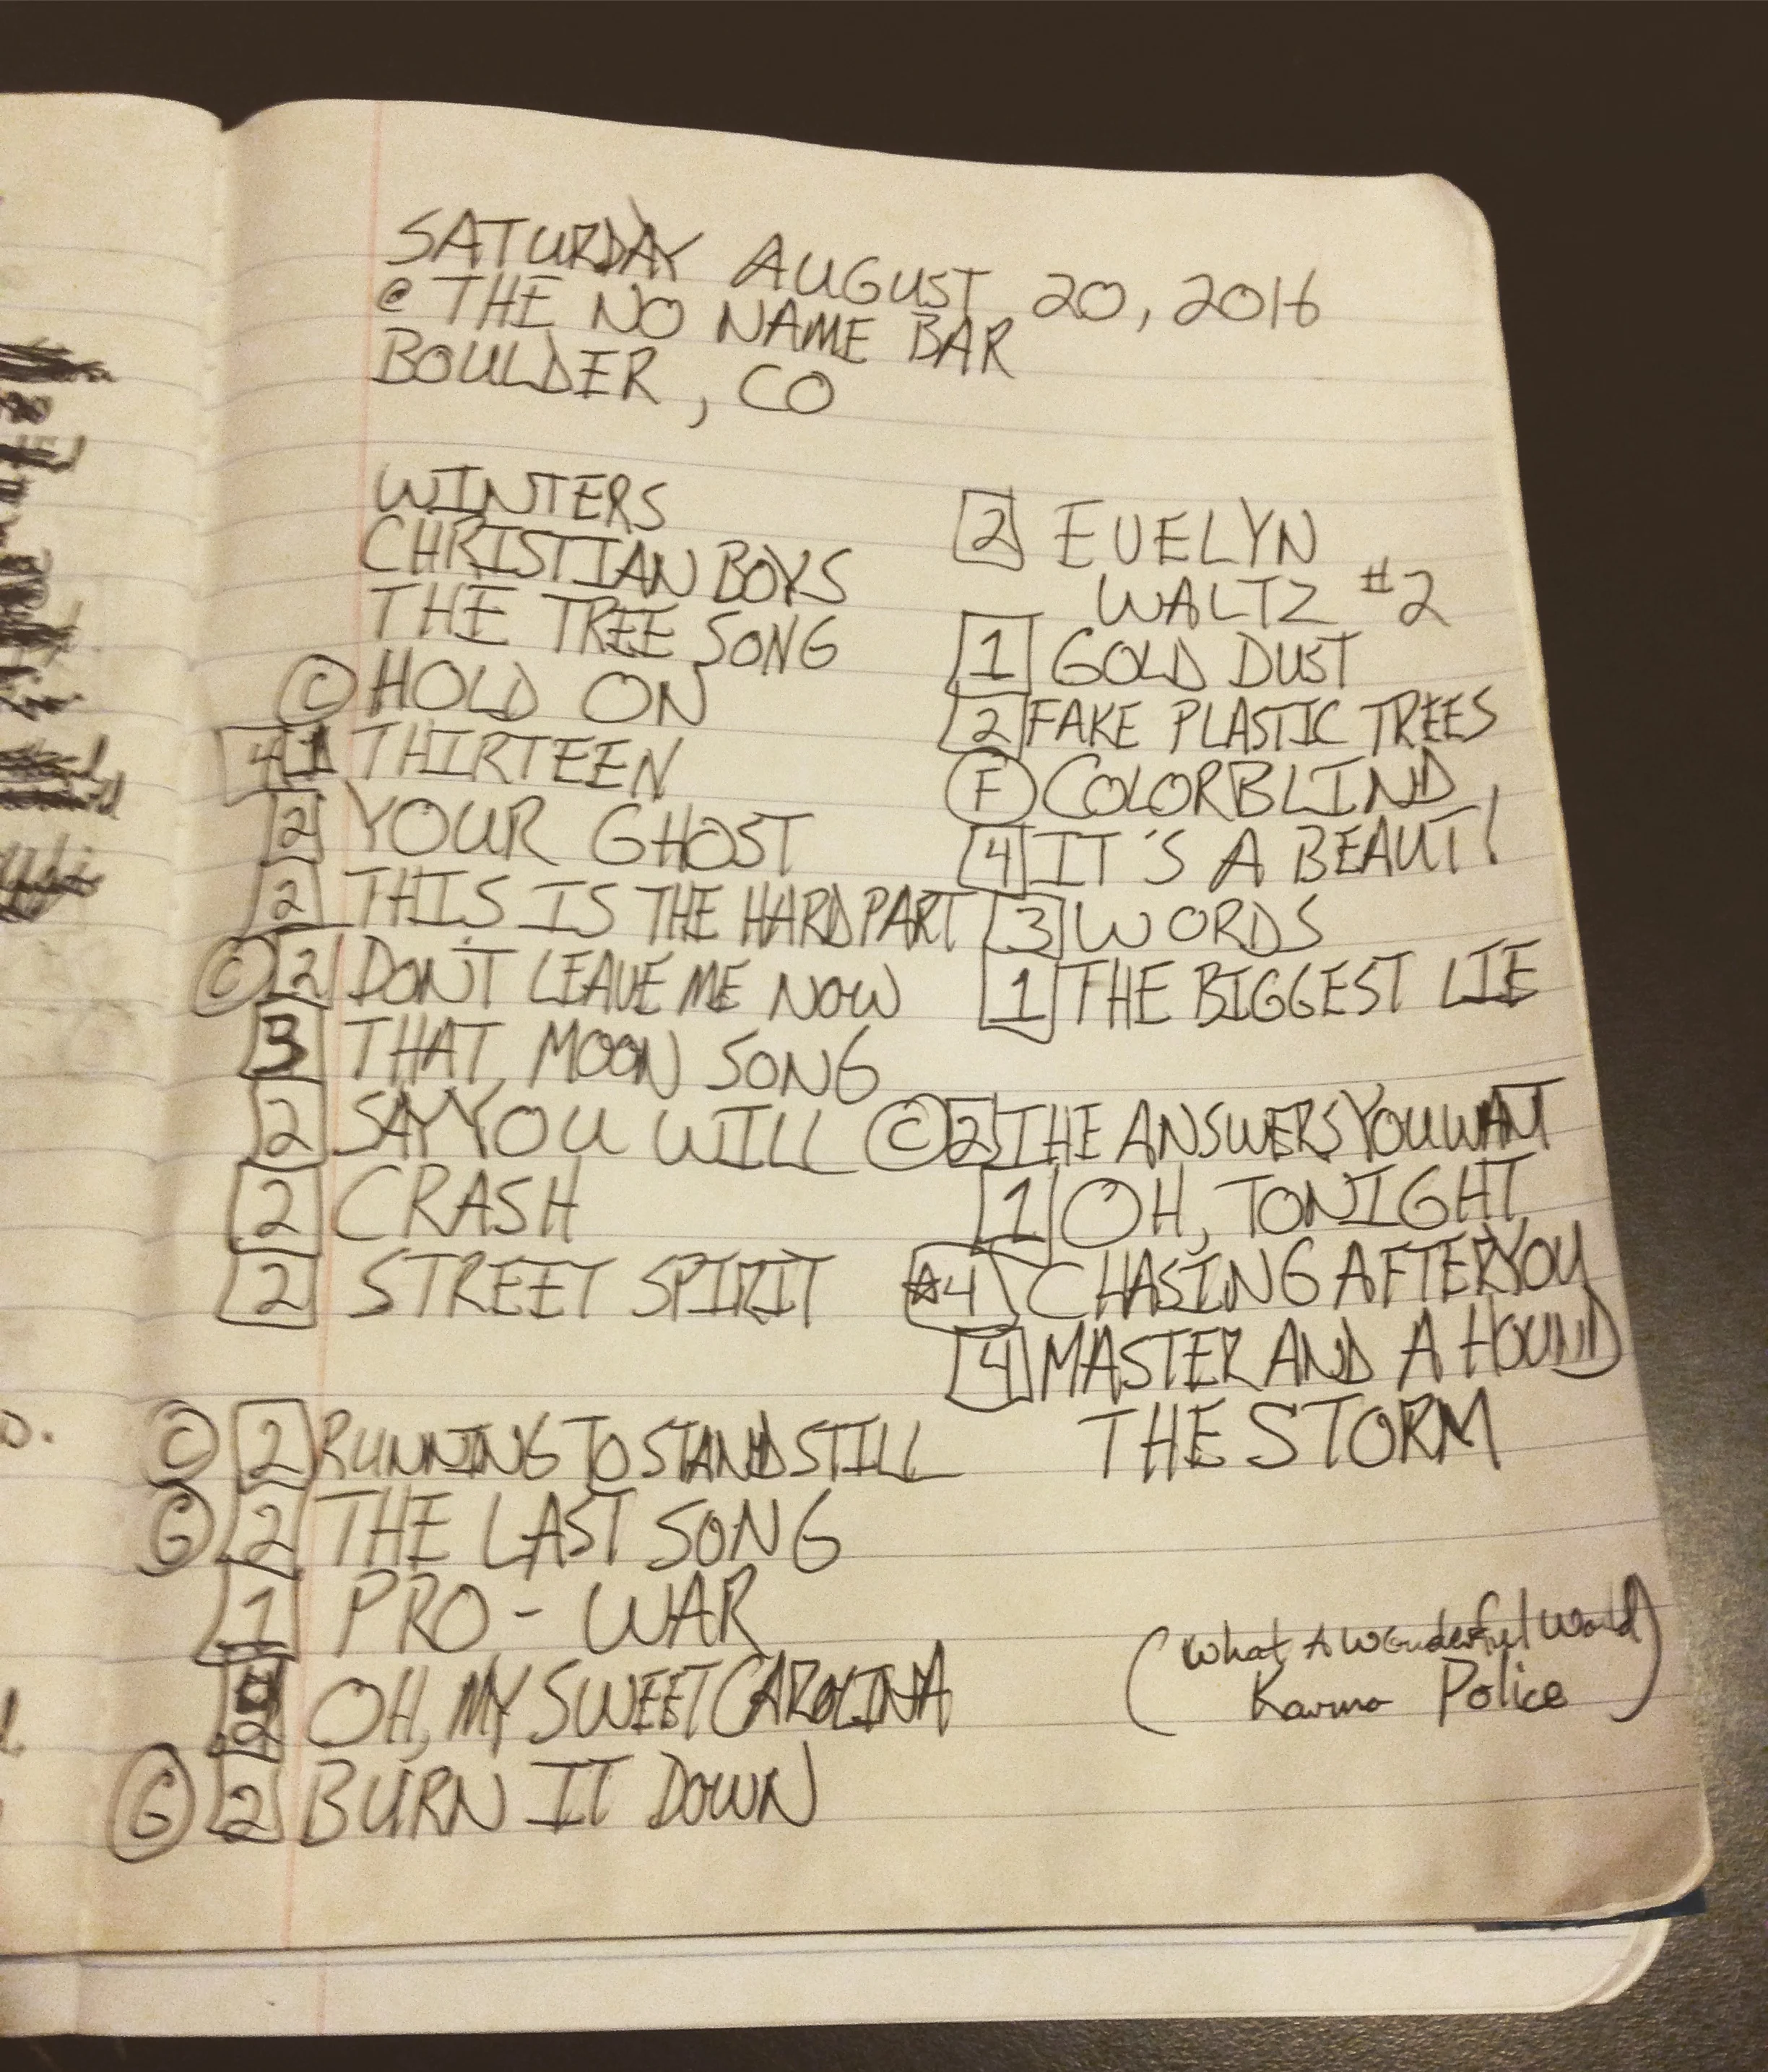 SATURDAY AUGUST 20, 2016
@ THE NO NAME BAR
BOULDER, CO
WINTERS
CHRISTIAN BOYS
THE TREE SONG
C HOLD ON
4 1 THIRTEEN
2 YOUR GHOST
2 THIS IS THE HARD PART
C 2 DON'T LEAVE ME NOW
3 THAT MOON SONG
2 SAY YOU WILL
2 CRASH
2 STREET SPIRIT
C 2 RUNNING TO STAND STILL
G 2 THE LAST SONG
1 PRO-WAR
2 OH, MY SWEET CAROLINA
G 2 BURN IT DOWN
2 EVELYN
WALTZ #2
1 GOLD DUST
2 FAKE PLASTIC TREES
F COLORBLIND
4 IT'S A BEAUT!
3 WORDS
1 THE BIGGEST LIE
C 2 THE ANSWERS YOU WANT
1 OH, TONIGHT
☆4 CHASING AFTER YOU
4 MASTER AND A HOUND
THE STORM
(What A Wonderful World
Karma Police)